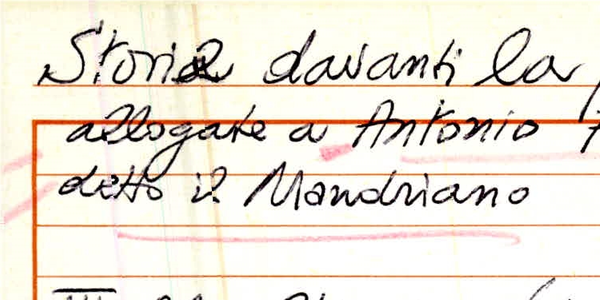 Storie davanti la
allogate a Antonio
detto il Mandriano